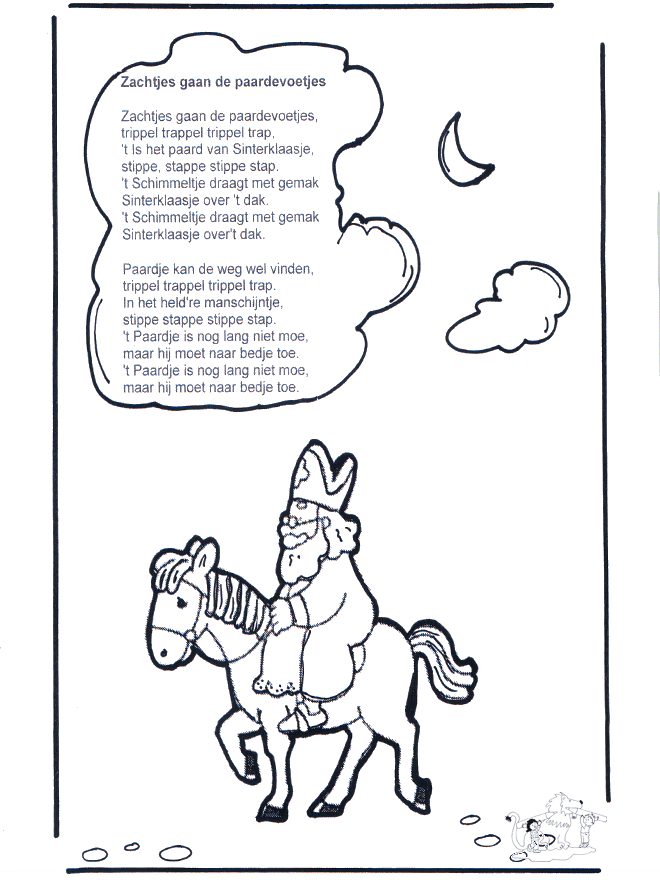 Zachtjes gaan de paardevoetjes
Zachtjes gaan de paardevoetjes,
trippel trappel trippel trap,
't Is het paard van Sinterklaasje,
stippe, stappe stippe stap.
't Schimmeltje draagt met gemak
Sinterklaasje over 't dak.
't Schimmeltje draagt met gemak
Sinterklaasje over't dak.
Paardje kan de weg wel vinden,
trippel trappel trippel trap.
In het held're manschijntje,
stippe stappe stippe stap.
't Paardje is nog lang niet moe,
maar hij moet naar bedje toe.
't Paardje is nog lang niet moe,
maar hij moet naar bedje toe.